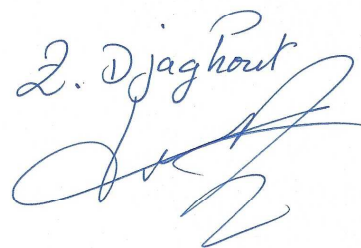 Z. Djaghout